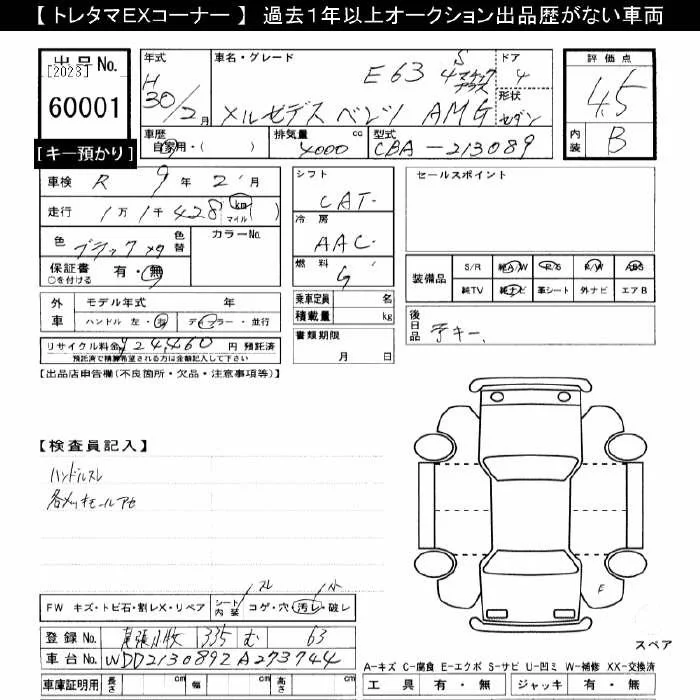 【 トレタマEXコーナー 】 過去1年以上オークション出品歴がない車両
出品 No.
[2023]
60001
[キー預かり]
年式
H
30/2月
車名・グレード
E63 S 4マチック プラス
メルセデス ベンツ AMG
ドア
4
形状
セダン
評価点
4.5
内装
B
車歴
自家用・( )
排気量
4000 cc
型式
CBA-213089
車検 R 9年 2月
走行 1万1千428 km マイル ( )
色 ブラックメタ
色替
カラーNo.
保証書 有・無
○を付ける
シフト
CAT.
冷房
AAC.
燃料
G
セールスポイント
装備品
S/R 純A/W R/S R/W ABS
純TV 純ナビ 革シート 外ナビ エアB
外車
モデル年式 年
ハンドル 左・右 ディーラー・並行
リサイクル料金 ¥24,460 円 預託済
預託済で積算希望される方は金額記入して下さい
乗車定員 名
積載量 kg
書類期限
月 日
後日品
【出品店申告欄(不良箇所・欠品・注意事項等)】
【検査員記入】
ハンドルスレ
FW キズ・トビ石・割レX・リペア
シート内装
スレ
コゲ・穴・汚レ・破レ
登録 No.
335 む 63
車台 No.
WDD2130892A273744
車庫証明用
長さ cm 幅 cm 高さ cm
F
スペア
A-キズ C-腐食 E-エクボ S-サビ U-凹ミ W-補修 XX-交換済
工具 有・無 ジャッキ 有・無